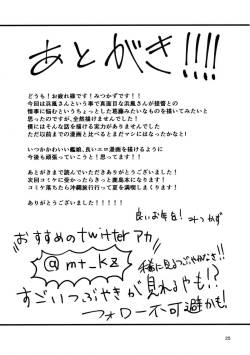 あとがき!!!!
どうも！お疲れ様です！みつかずです！！
今回は浜風さんという事で真面目な浜風さんが提督との
情事に悩むというちょっとした葛藤みたいなものを描いてみたいと
思ったのですが、全然描けませんでした！
僕にはそんな話を描ける実力がありませんでした
ただ以前までの漫画と比べるとまだマシにはなったかなと!
いつかかわいい艦娘、良いエロ漫画を描けるように
今後も頑張っていこうと思います！
あとがきまで読んでいただきありがとうございます！
次回コミケに受かったらきっと鹿島本になります！
コミケ落ちたら沖縄旅行行って夏を満喫しまくります！
ありがとうございました！！！！
良いお年を！ みつかず
おすすめのtwitterアカ
@mt_kz
すごいつぶやきが見れるやも!?
フォロー不可避かも!
25